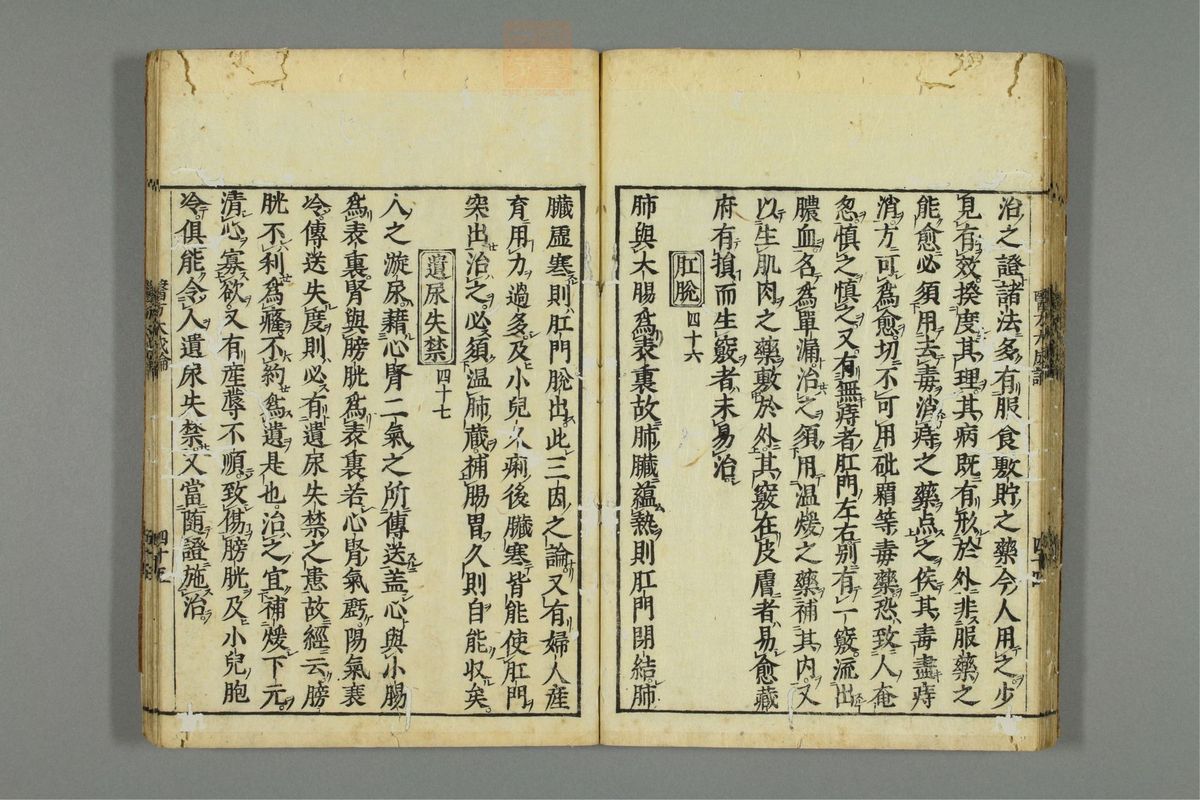 治之證諸法多有服食敷貯之藥今人用之少
見有效揆度其理其病既有形於外非服藥之
能愈必須用去毒消痔之藥点之俟其毒盡痔
消方可為愈切不可用砒霜等毒藥恐致人奄
忽慎之慎之又有無痔者肛門左右別有一竅流出
膿血名為單漏治之須用温煖之藥補其内又
以生肌肉之藥敷於外其竅在皮膚者易愈藏
府有損而生竅者未易治
肛脫 四十六
肺與大腸為表裏故肺臟蘊熱則肛門閉結肺
臟虛寒則肛門脫出此三因之論又有婦人産
育用力過多及小兒久痢後臟寒皆能使肛門
突出治之必須温肺藏補腸胃久則自能収矣
遺尿失禁 四十七
人之漩尿藉心腎二氣之所傳送盖心與小腸
為表裏腎與膀胱為表裏若心腎氣虧陽氣衰
冷傳送失度則必有遺尿失禁之患故經云膀
胱不利為癃不約為遺是也治之宜補煖下元
清心寡欲又有産蓐不順致傷膀胱及小兒胞
冷俱能令人遺尿失禁又當随證施治
醫方大成論
四十五